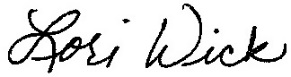 Lori Wick